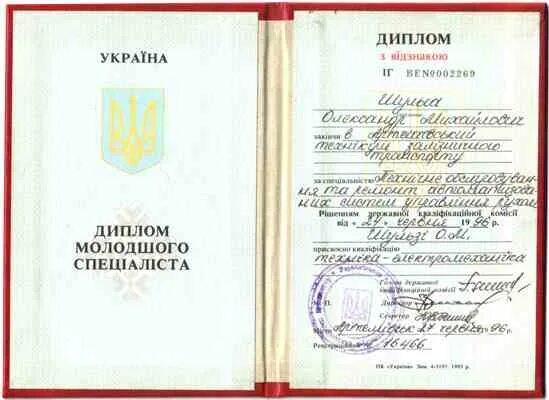 УКРАЇНА
ДИПЛОМ
МОЛОДШОГО
СПЕЦІАЛІСТА
ДИПЛОМ
з відзнакою
ІГ ВЕ№002269
Шульга
Олександр Михайлович
закінчив Артемівський
технікум залізничного
транспорту
за спеціальністю Технічне обслуговуван-
ня та ремонт автоматизова-
них систем управління рухом
Рішенням державної кваліфікаційної комісії
від « 27 » червня 1996р.
Шульзі О.М.
присвоєно кваліфікацію
техніка-електромеханіка
Голова державної
кваліфікаційної комісії
Директор
М. П.
Секретар
Місто Артемівськ 27 червня 1996р.
Реєстраційний № 16466
ПК «Україна» Зам. 4-3197 1993 р.